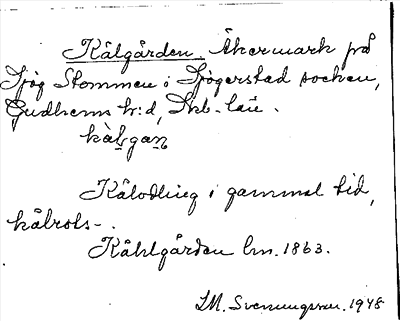 Kålgården. Åkermark på
Sjög Stommen i Sjögerstad socken,
Gudhems h:d, Skb. län.
kàl̥gan̥
Kålodling i gammal tid,
kålrots-.
Kåhlgården lm. 1863.
I.M. Svenungsson. 1948